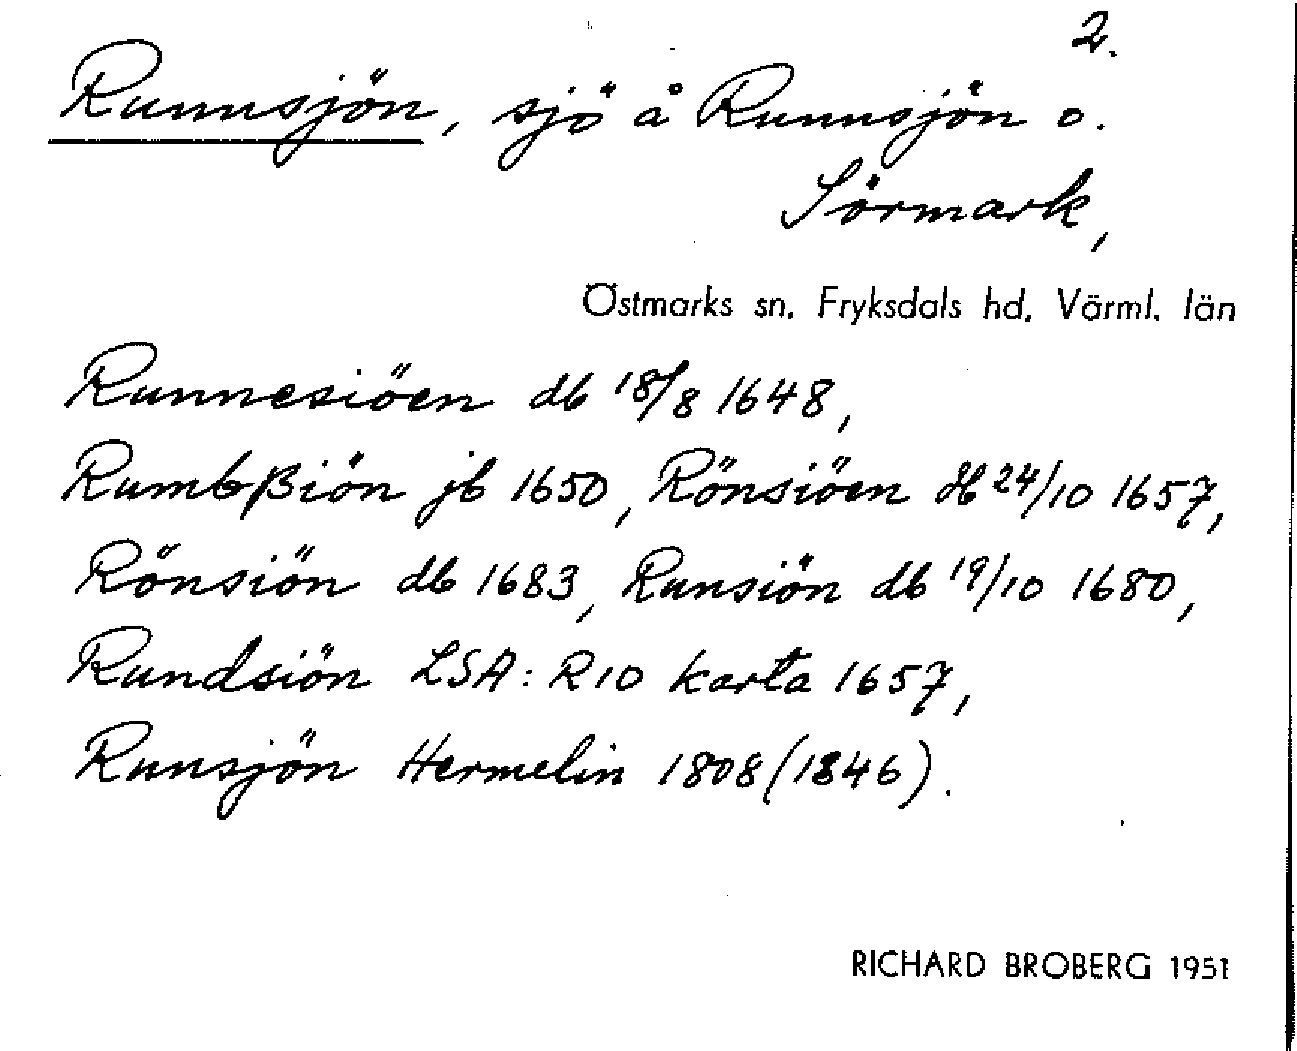 2.
Runnsjön, sjö å Runnsjön o.
Sörmark,
Östmarks sn. Fryksdals hd. Värml. län
Runnesiöen db 18/8 1648,
Rumbßiön jb 1650, Rönsiöen db 24/10 1657,
Rönsiön db 1683, Runsiön db 19/10 1680,
Rundsiön LSA: R10 karta 1657,
Runsjön Hermelin 1808 (1846).
RICHARD BROBERG 1951